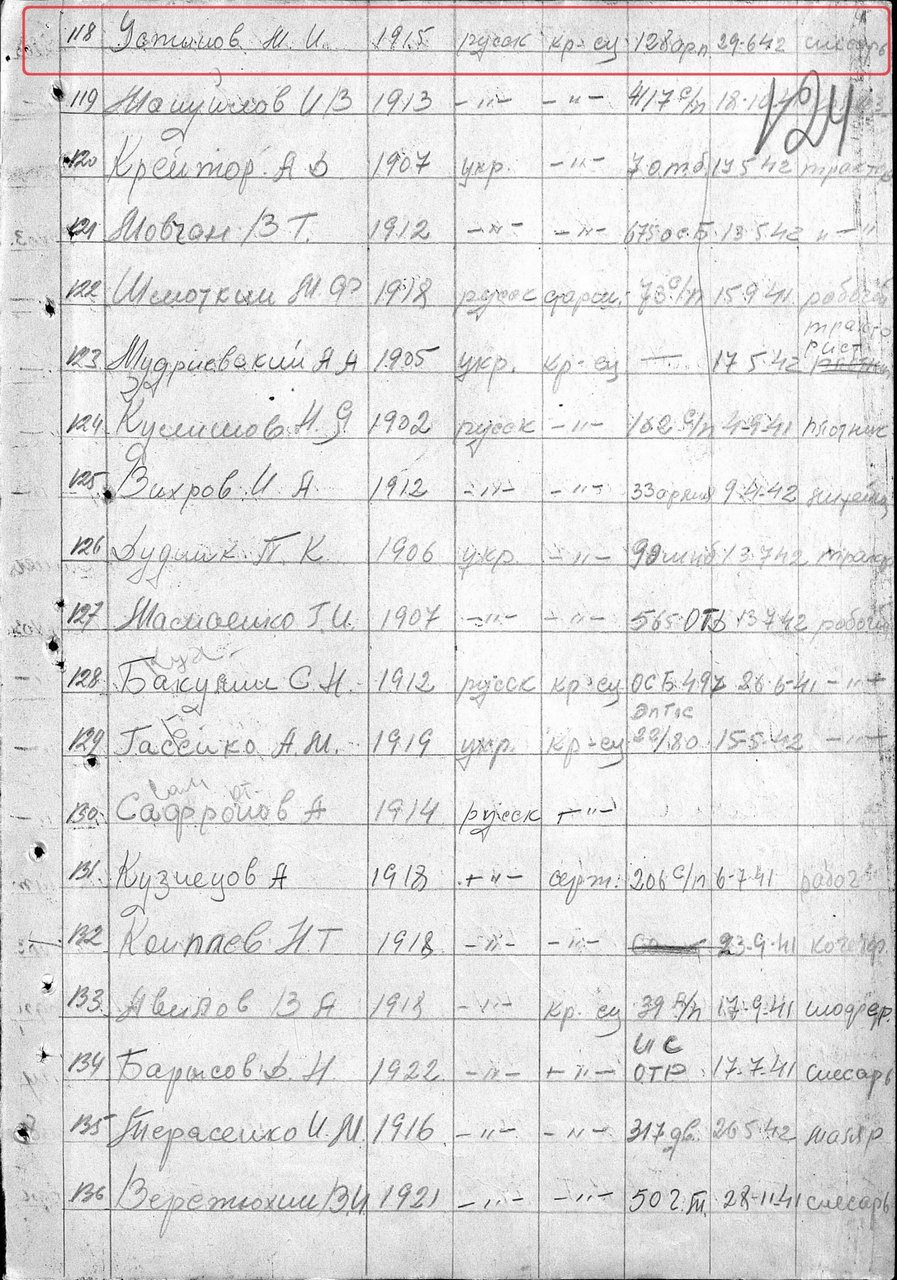 118 Устинов М. И. 1915 русск кр-ец 128 арп 29.6.42 слесарь
119 Мануйлов И В 1913 -"- -"- 417 с/п 18.10
V24
120 Крейтор А Д 1907 укр. -"- 7 о.т.б. 17.5.42 тракто
121 Мовчан В Т. 1912 -"- -"- 675 ос.Б. 13.5.42 " - "
122 Шмоткин М Ф 1918 русск старш. 73 с/п 15.9.41 рабочий
123 Мудриевский А А 1905 укр. кр-ец — 17.5.42 тракто
рист
124 Кулишов Н Я 1902 русск -"- 162 с/п 4-9-41 плотник
125 Вихров И А 1912 -"- -"- 33 армия 9.4.42
126 Дудник П К 1906 укр -"- 90 13.7.42 тракт
127 Масловенко Г. И. 1907 -"- -"- 565 ОТБ 13.7.42 рабочий
128 Бакунин С Н. 1912 русск кр-ец ОСБ 497 26.6.41 - " -
129 Гасенко А. М. 1919 укр. кр-ец 22/80 15-5-42 - " -
130 Сафронов А 1914 русск -"-
131 Кузнецов А 1918 -"- серж. 206 с/п 6-7-41 рабоч
132 Н Т 1918 -"- -"- 23-9-41 кочегар.
133 Авилов В А 1918 -"- кр. ец 39 с/п 17-9-41 шофер.
134 Барысов Д. Н. 1922 -"- -"- ОТР 17-7-41 слесарь
135 Терасенко И. М. 1916 -"- -"- 317 дв. 26.5.42 маляр
136 Веретюхин В И 1921 -"- -"- 50 г. т. 28-11-41 слесарь